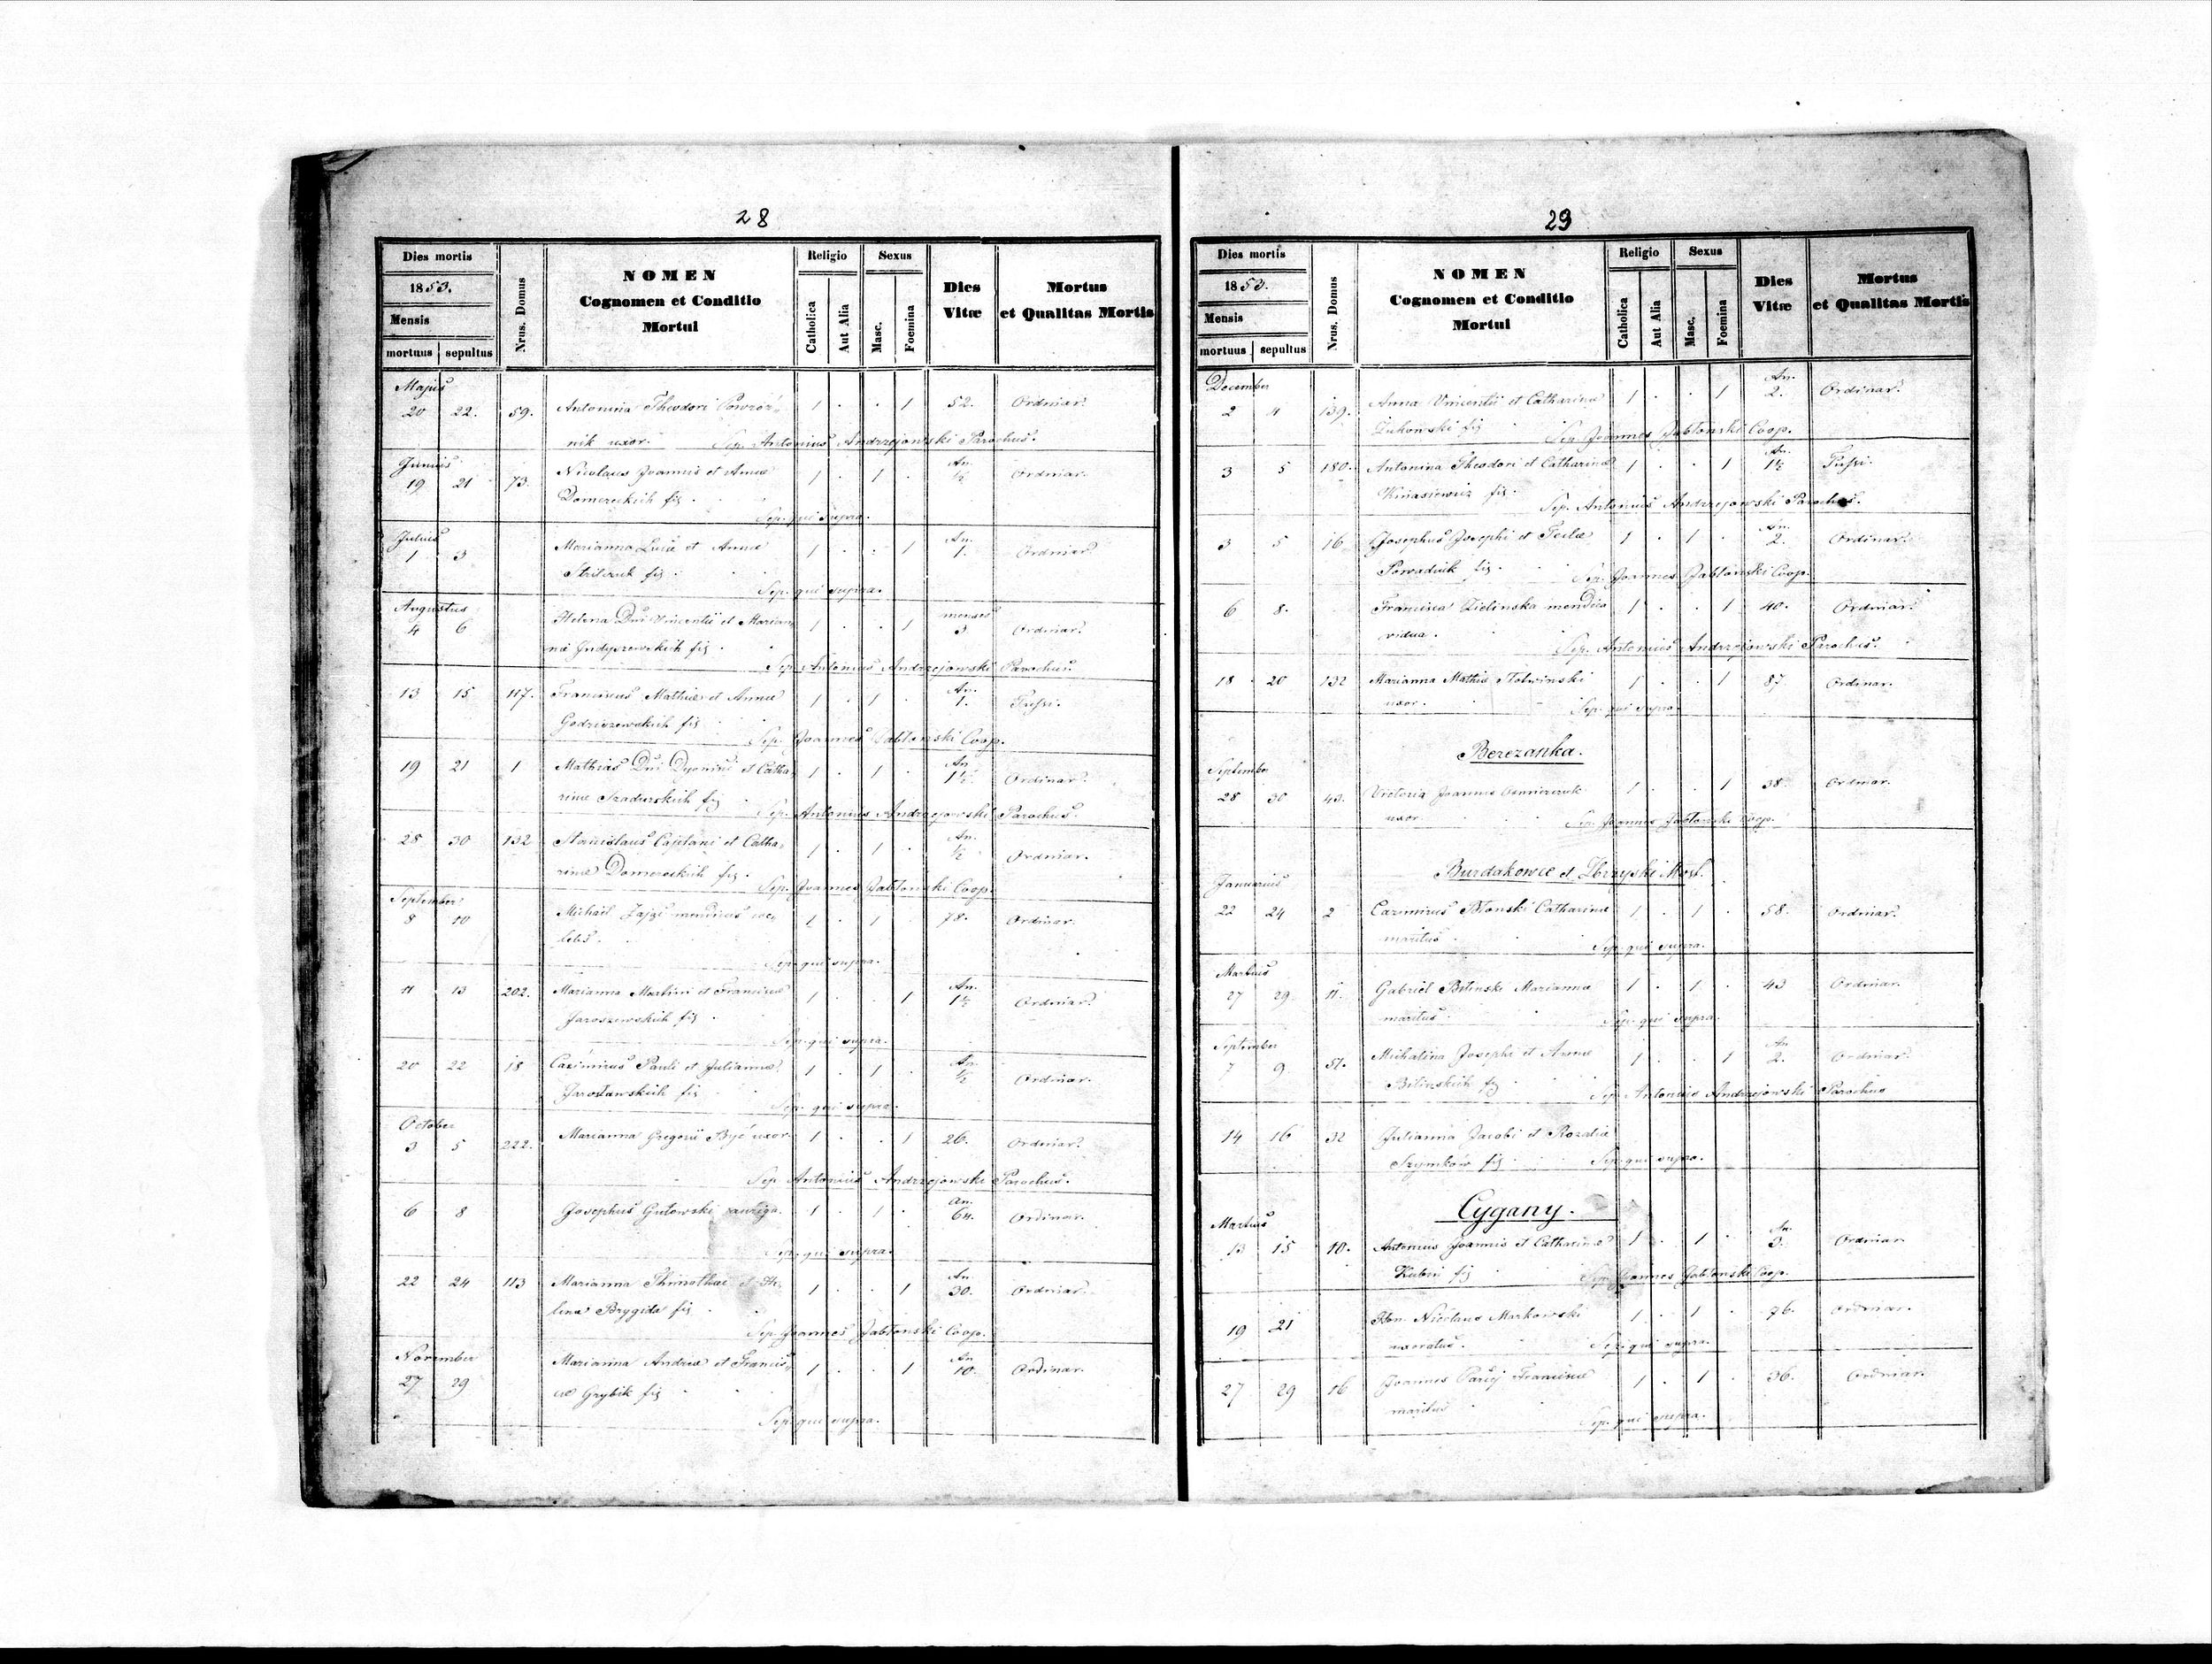 28
Dies mortis
1853.
Mensis
mortuus sepultus
Nrus. Domus
NOMEN
Cognomen et Conditio
Mortui
Religio
Catholica
Aut Alia
Sexus
Masc.
Foemina
Dies
Vitæ
Mortus
et Qualitas Mortis
Majus
20 22. 59. Antonina Theodori Powróz= 1 . . 1 52. Ordinar.
nik uxor. Sep. Antonius Andrzejowski Parochus.
Junius An.
19 21 73. Nicolaus Joannis et Annæ 1 . 1 . ½ Ordinar.
Domereckich fig.
Sep. qui supra.
Julius An.
1 3 Marianna Lucæ et Annæ 1 . . 1 1. Ordinar.
fig.
Sep. qui supra.
Augustus menses
4 6 Helena Dni Vincentii et Marian= 1 . . 1 3 Ordinar.
næ Jndyszewskich fig.
Sep. Antonius Andrzejowski Parochus.
An.
13 15 117. Franciscus Mathiæ et Annæ 1 . 1 . 1. Tussi.
Godziszewskich fig.
Sep. Joannes Jabłonski Coop.
An.
19 21 1 Mathias Dni Dyonisii et Catha= 1 . 1 . 1½ Ordinar.
rinæ Szadurskich fig
Sep. Antonius Andrzejowski Parochus.
An.
28 30 132 Stanislaus Cajetani et Catha= 1 . 1 . ½ Ordinar.
rinæ Domereckich fig.
Sep. Joannes Jabłonski Coop.
September
8 10 Michael Zając mendicus cœ= 1 . 1 . 78. Ordinar.
lebs.
Sep. qui supra.
An.
11 13 202. Marianna Martini et Franciscæ 1 . . 1 1½ Ordinar.
Jaroszewskich fig.
Sep. qui supra.
An.
20 22 18 Casimirus Pauli et Juliannæ 1 . 1 . ½ Ordinar.
Jarosławskich fig
Sep. qui supra.
October
3 5 222. Marianna Gregorii Być uxor 1 . . 1 26. Ordinar.
Sep. Antonius Andrzejowski Parochus.
An.
6 8 Josephus Gutowski auriga. 1 . 1 . 64. Ordinar.
Sep. qui supra.
An
22 24 113 Marianna et 1 . . 1 30. Ordinar.
lenæ Brygida fig
Sep. Joannes Jabłonski Coop.
November An
27 29 Marianna Andreæ et Francis= 1 . . 1 10. Ordinar.
cæ Grybik fig
Sep. qui supra.
29
Dies mortis
1853.
Mensis
mortuus sepultus
Nrus. Domus
NOMEN
Cognomen et Conditio
Mortui
Religio
Catholica
Aut Alia
Sexus
Masc.
Foemina
Dies
Vitæ
Mortus
et Qualitas Mortis
December An.
2 4 139. Anna Vincentii et Catharinæ 1 . . 1 2. Ordinar.
Żukowski fig
Sep. Joannes Jabłonski Coop.
An.
3 5 180. Antonina Theodori et Catharinæ 1 . . 1 1½ Tussi.
Kniasiewicz fig.
Sep. Antonius Andrzejowski Parochus.
An.
3 5 16 Josephus Josephi et Teclæ 1 . 1 . 2. Ordinar.
fig.
Sep. Joannes Jabłonski Coop.
6 8. Francisca Zielinska mendica 1 . . 1 40. Ordinar.
vidua.
Sep. Antonius Andrzejowski Parochus.
18 20 132 Marianna Mathiæ Tolwinski 1 . . 1 87 Ordinar.
uxor.
Sep. qui supra.
Berezanka.
September
28 30 43. Victoria Joannis 1 . . 1 38. Ordinar.
uxor
Sep. Joannes Jabłonski Coop.
Burdakowce et Zbrzyski Most.
Januarius
22 24 2 Casimirus Błonski Catharinæ 1 . 1 . 58. Ordinar.
maritus.
Sep. qui supra.
Martius
27 29 11. Gabriel Bilinski Mariannæ 1 . 1 . 43 Ordinar.
maritus.
Sep. qui supra.
September An
7 9 51. Michalina Josephi et Annæ 1 . . 1 2. Ordinar.
Bilinskich fig
Sep. Antonius Andrzejowski Parochus
14 16 32 Julianna Jacobi et Rozaliæ
Szymków fig
Sep. qui supra.
Cygany.
Martius An.
13 15 10. Antonius Joannis et Catharinæ 1 . 1 . 3. Ordinar.
fig
Sep. Joannes Jabłonski Coop.
19 21 Nicolaus Markowski 1 . 1 . 76. Ordinar.
uxoratus.
Sep. qui supra.
27 29 16 Joannes Franciscæ 1 . 1 . 36. Ordinar.
maritus
Sep. qui supra.